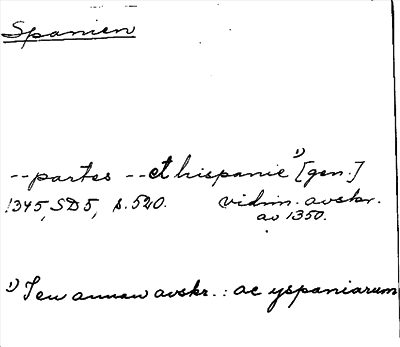 Spanien
--partes --et hispanie ¹) [gen.]
1345, SD5, s. 520. vidim. avskr.
av 1350.
¹) I en annan avskr.: ac yspaniarum